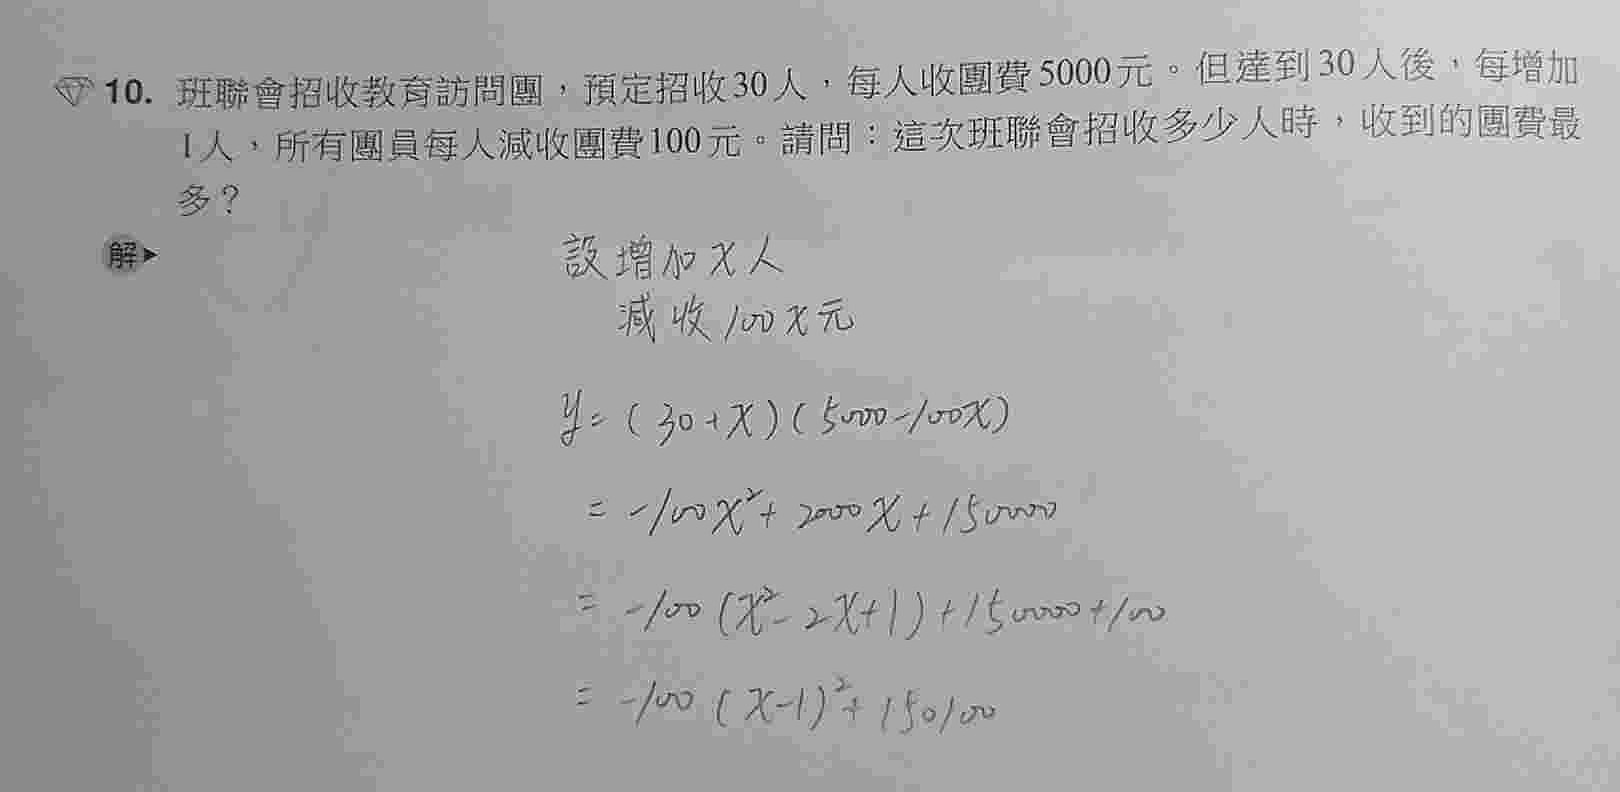 10. 班聯會招收教育訪問團，預定招收30人，每人收團費5000元。但達到30人後，每增加
1人，所有團員每人減收團費100元。請問：這次班聯會招收多少人時，收到的團費最
多？
解
設增加x人
減收100x元
y=(30+x)(5000-100x)
=-100x²+2000x+150000
=-100(x²-2x+1)+150000+100
=-100(x-1)²+150100